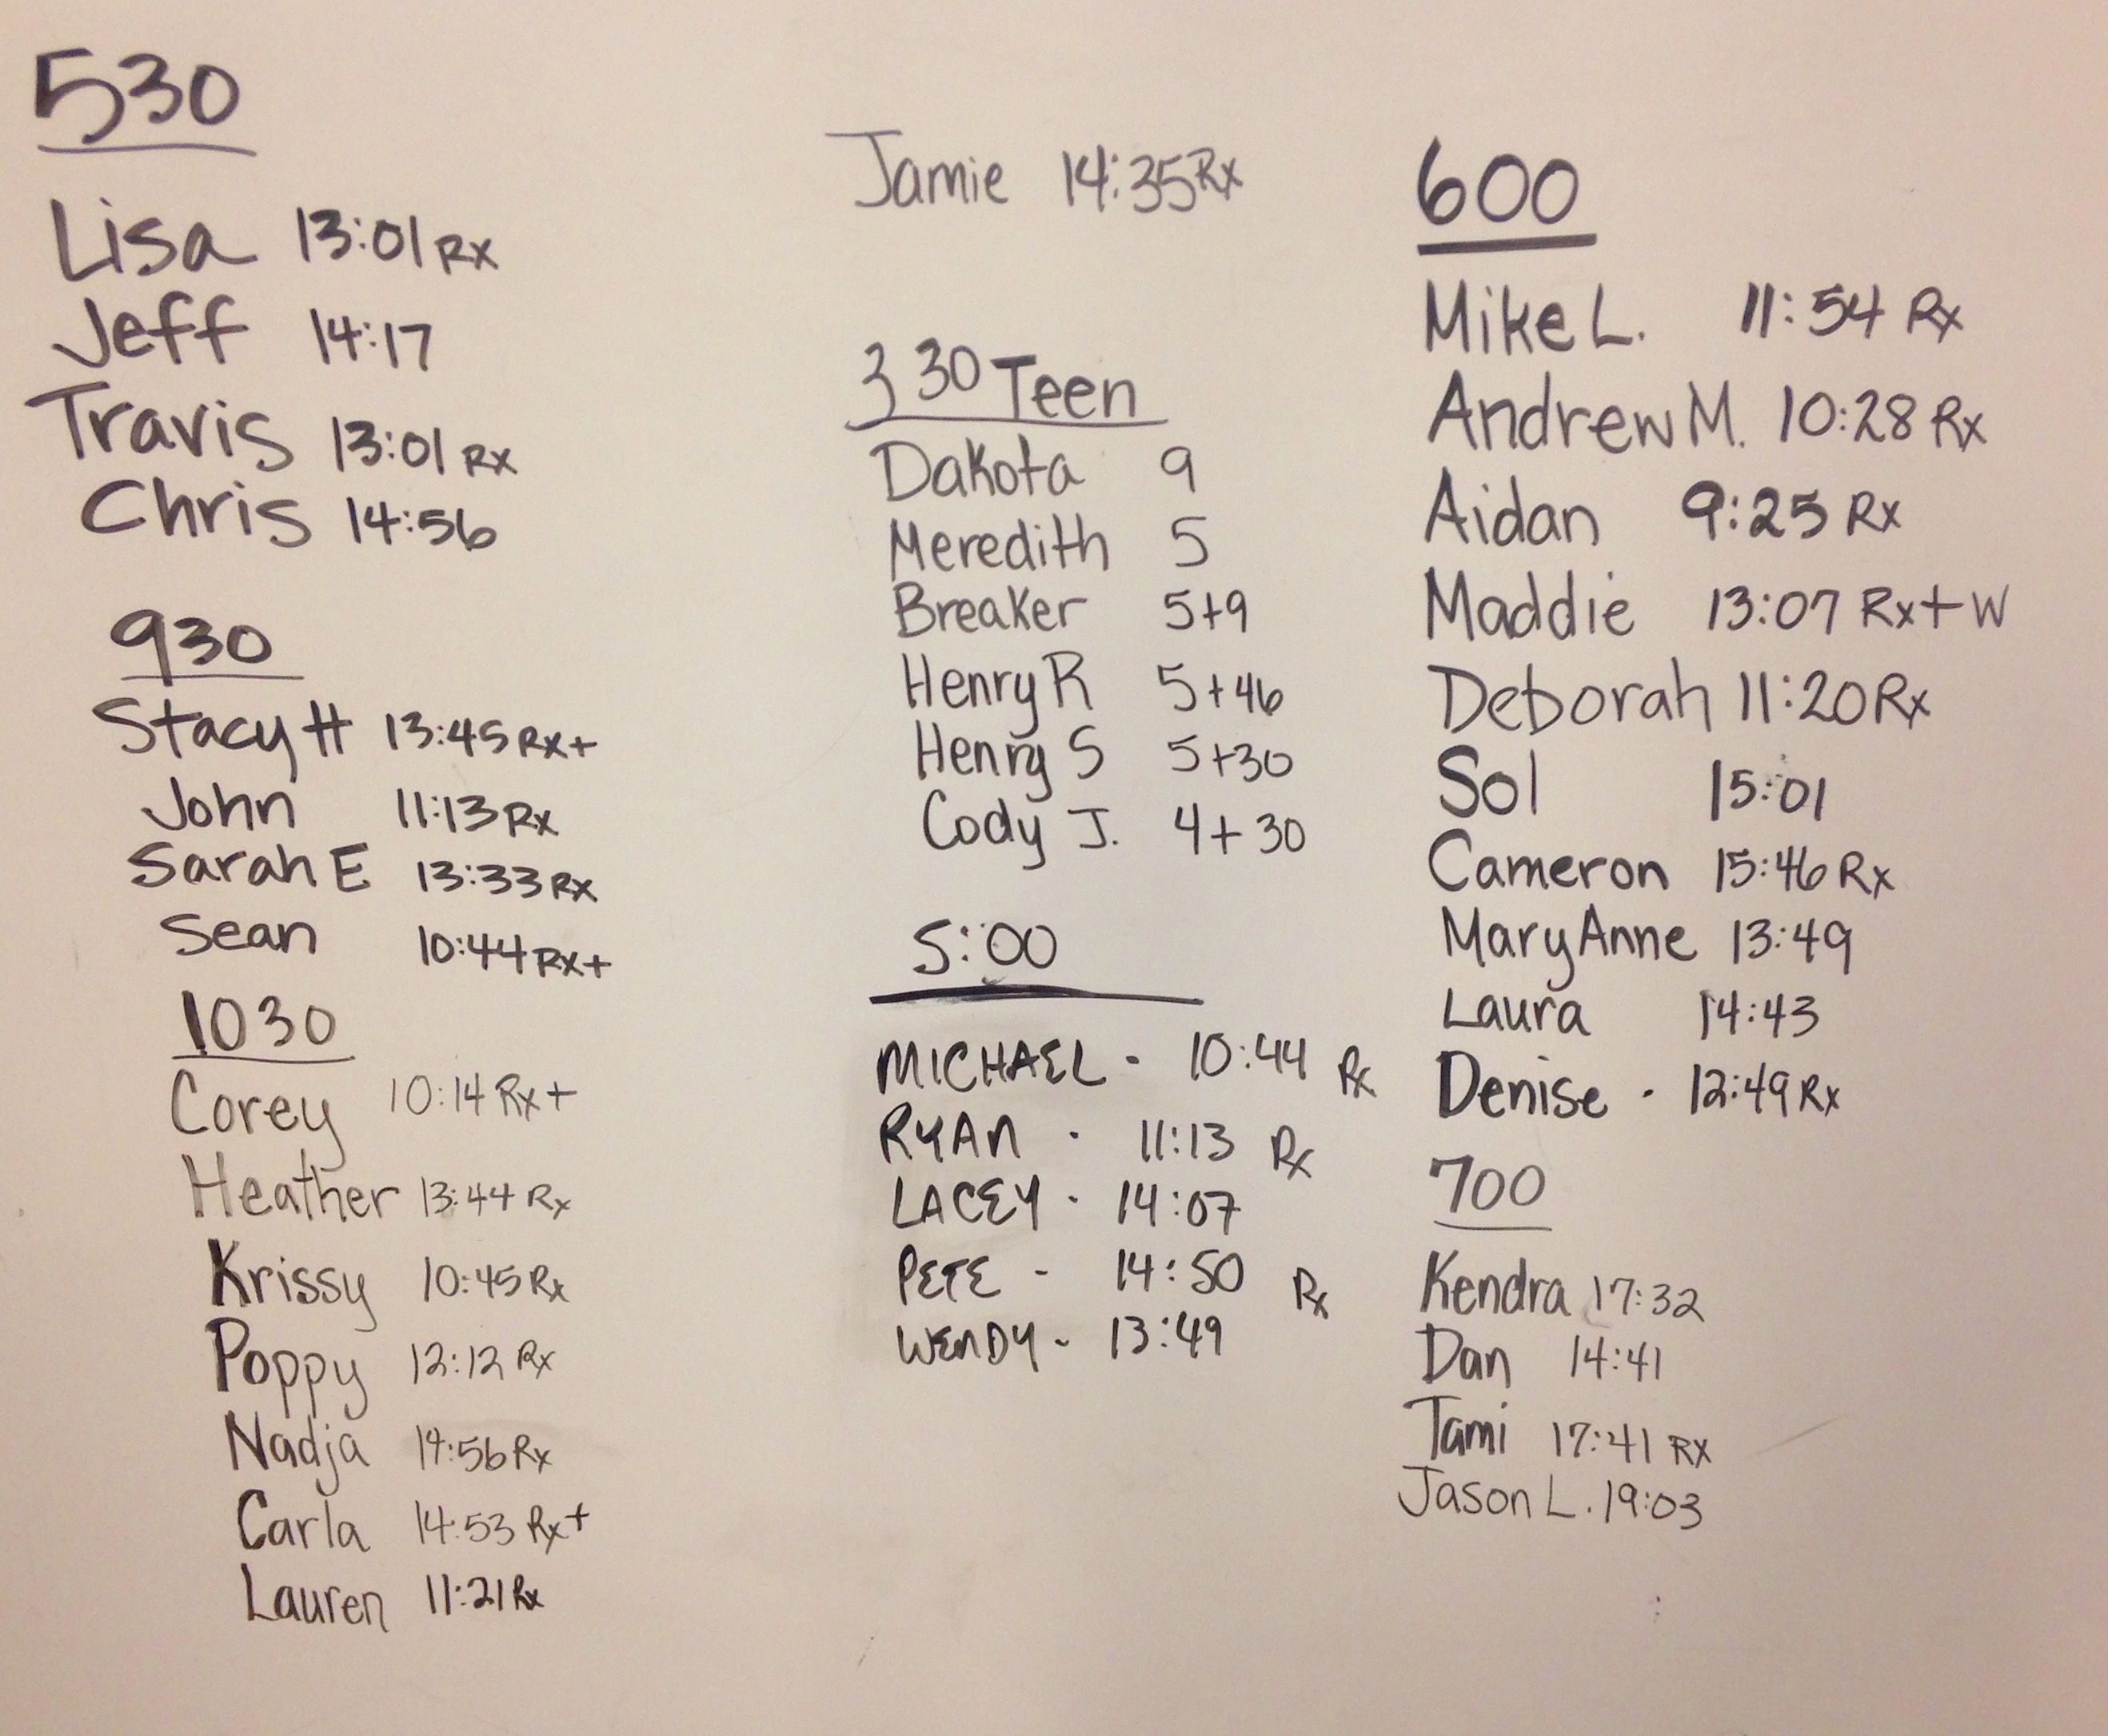 530
Lisa 13:01 Rx
Jeff 14:17
Travis 13:01 Rx
Chris 14:56
930
Stacy H 13:45 Rx+
John 11:13 Rx
Sarah E 13:33 Rx
Sean 10:44 Rx+
1030
Corey 10:14 Rx+
Heather 13:44 Rx
Krissy 10:45 Rx
Poppy 12:12 Rx
Nadja 14:56 Rx
Carla 14:53 Rx+
Lauren 11:21 Rx
Jamie 14:35 Rx
330 Teen
Dakota 9
Meredith 5
Breaker 5+9
Henry R 5+46
Henry S 5+30
Cody J. 4+30
5:00
MICHAEL - 10:44 Rx
RYAN - 11:13 Rx
LACEY - 14:07
PETE - 14:50 Rx
WENDY - 13:49
600
Mike L. 11:54 Rx
Andrew M. 10:28 Rx
Aidan 9:25 Rx
Maddie 13:07 Rx+W
Deborah 11:20 Rx
Sol 15:01
Cameron 15:46 Rx
MaryAnne 13:49
Laura 14:43
Denise - 12:49 Rx
700
Kendra 17:32
Dan 14:41
Tami 17:41 RX
Jason L. 19:03